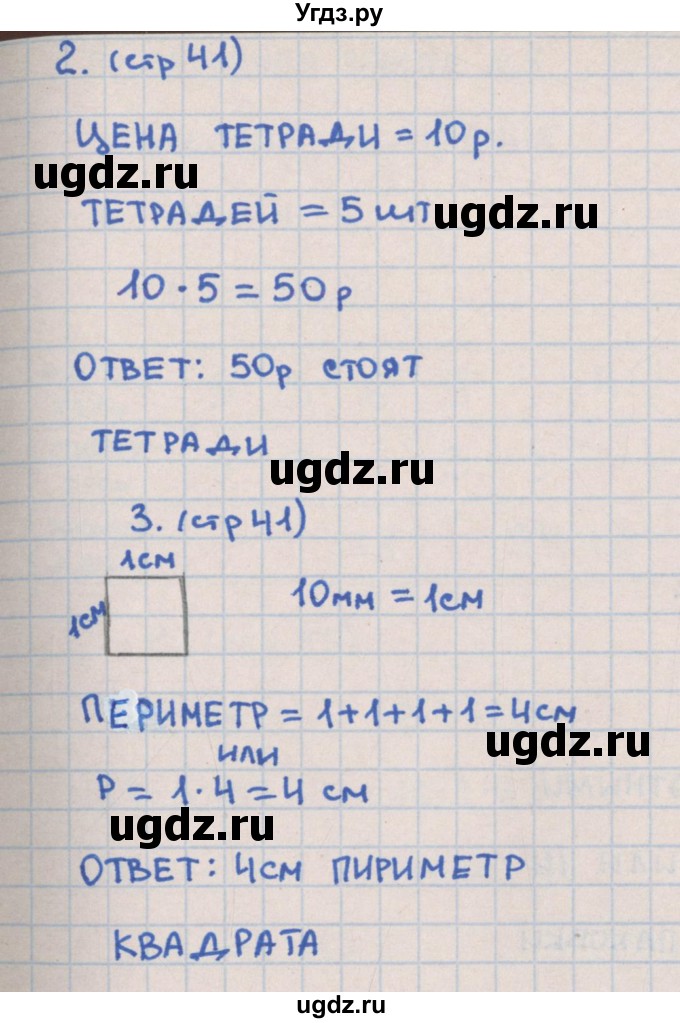 Угдз.ру
2. (стр 41)
ЦЕНА ТЕТРАДИ = 10р.
ugdz.ru
ТЕТРАДЕЙ = 5 шт
ugdz.ru
10 · 5 = 50 р
ОТВЕТ: 50р СТОЯТ
ТЕТРАДИ
ugdz.ru
3. (стр 41)
1см
1см
10мм = 1см
ПЕРИМЕТР = 1+1+1+1=4см
или
ugdz.ru
Р = 1 · 4 = 4 см
ugdz.ru
ОТВЕТ: 4см ПИРИМЕТР
КВАДРАТА
ugdz.ru